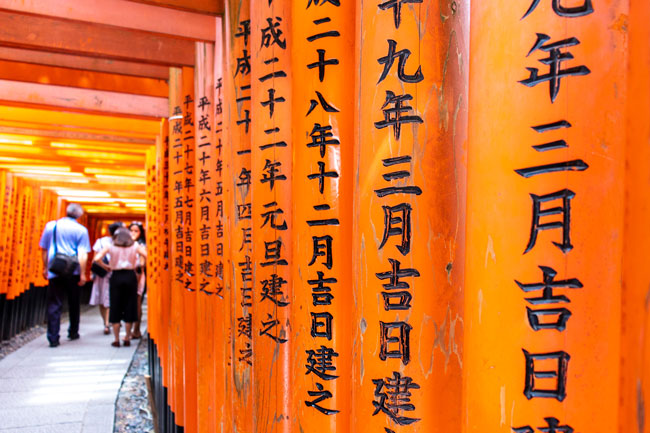 元年三月吉日建
十九年三月吉日建
二十八年十二月吉日建之
成二十二年元旦建之
平成二十一年四月吉日建之
平成二十年六月吉日建之
平成二十七年七月吉日建之
平成二十一年五月吉日建之